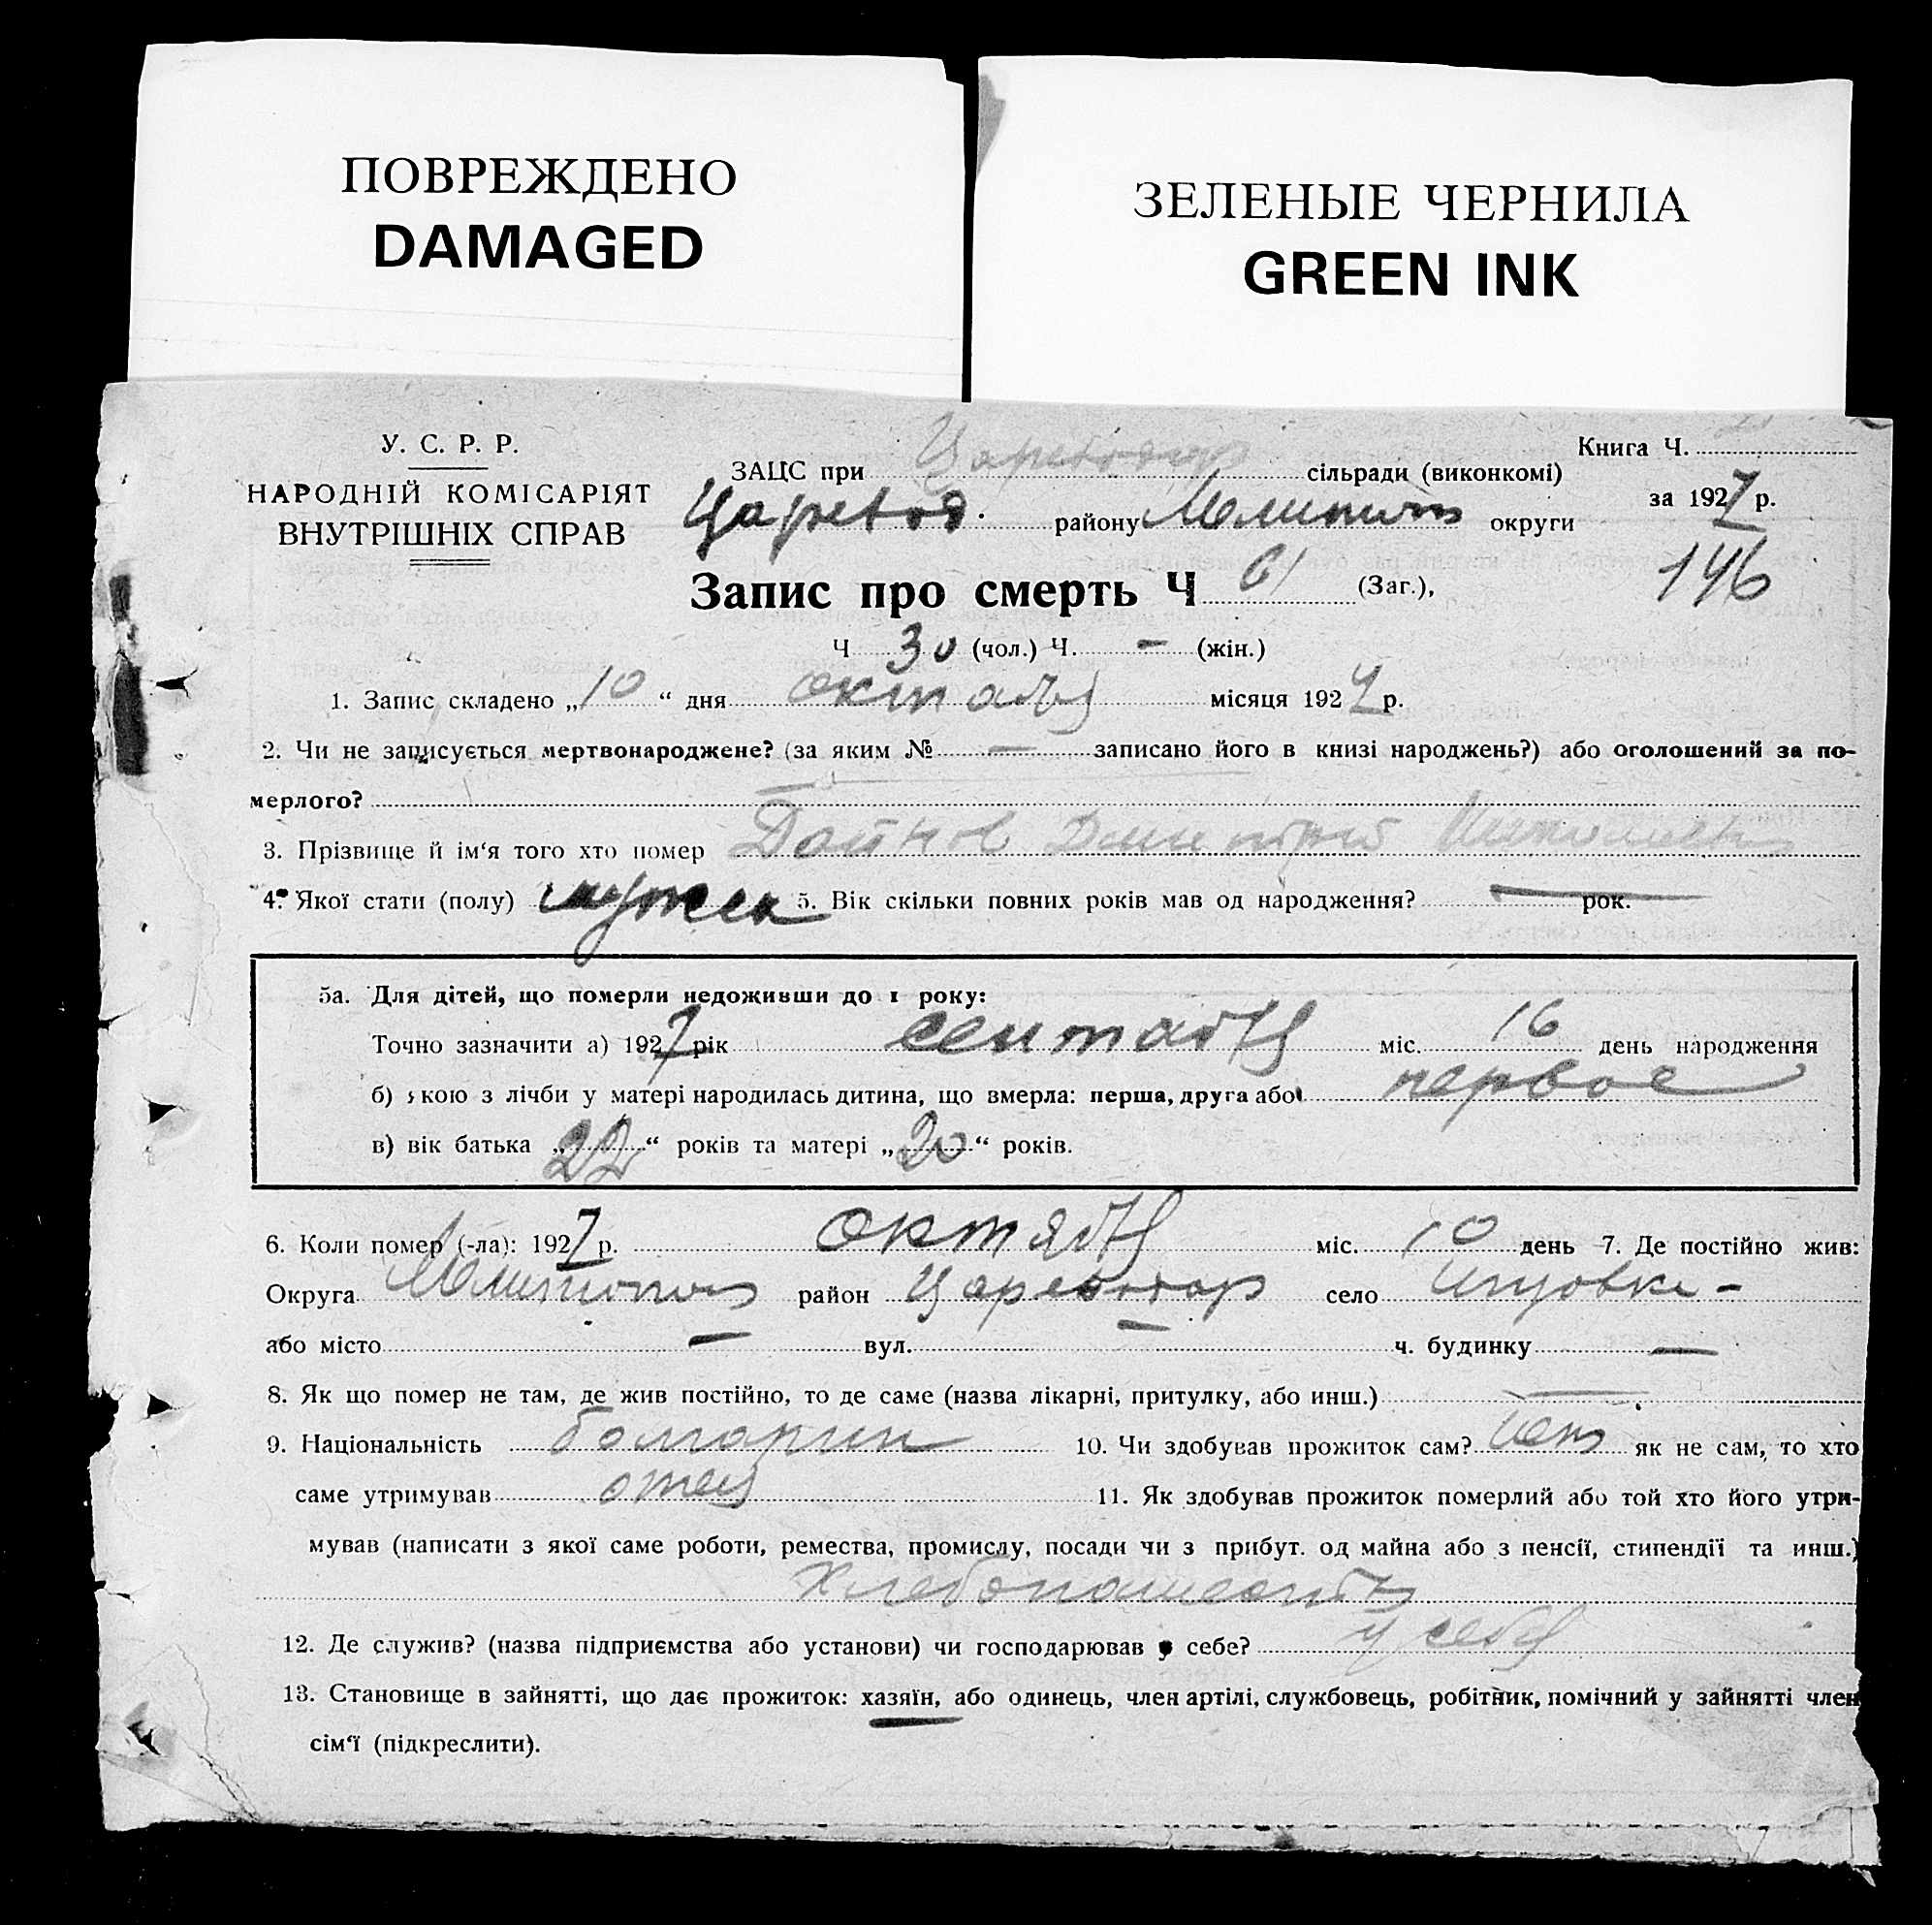 ПОВРЕЖДЕНО
DAMAGED
ЗЕЛЕНЫЕ ЧЕРНИЛА
GREEN INK
У. С. Р. Р.
НАРОДНІЙ КОМІСАРІЯТ
ВНУТРІШНІХ СПРАВ
Книга Ч.
за 1927 р.
146
ЗАЦС при сільради (виконкомі)
Царевод. району округи
Запис про смерть Ч 61 (Заг.),
Ч 30 (чол.) Ч. — (жін.)
1. Запис складено „10“ дня октября місяця 1927 р.
2. Чи не записується мертвонароджене? (за яким № — записано його в книзі народжень?) або оголошений за по-
мерлого? —
3. Прізвище й ім‘я того хто помер Дмитрий
4. Якої стати (полу) мужск 5. Вік скільки повних років мав од народження? — рок.
5а. Для дітей, що померли недоживши до 1 року:
Точно зазначити а) 1927 рік сентября міс. 16 день народження
б) якою з лічби у матері народилась дитина, що вмерла: перша, друга або первое
в) вік батька „22“ років та матері „20“ років.
6. Коли помер (-ла): 1927 р. октября міс. 10 день 7. Де постійно жив:
Округа район Цареводар село
або місто — вул. — ч. будинку —
8. Як що помер не там, де жив постійно, то де саме (назва лікарні, притулку, або инш.) —
9. Національність болгарин 10. Чи здобував прожиток сам? нет як не сам, то хто
саме утримував отец 11. Як здобував прожиток померлий або той хто його утри-
мував (написати з якої саме роботи, ремества, промислу, посади чи з прибут. од майна або з пенсії, стипендії та инш.)
Хлебопашеств
12. Де служив? (назва підприємства або установи) чи господарював у себе? у себя
13. Становище в зайнятті, що дає прожиток: хазяїн, або одинець, член артілі, службовець, робітник, помічний у зайнятті член
сім‘ї (підкреслити).